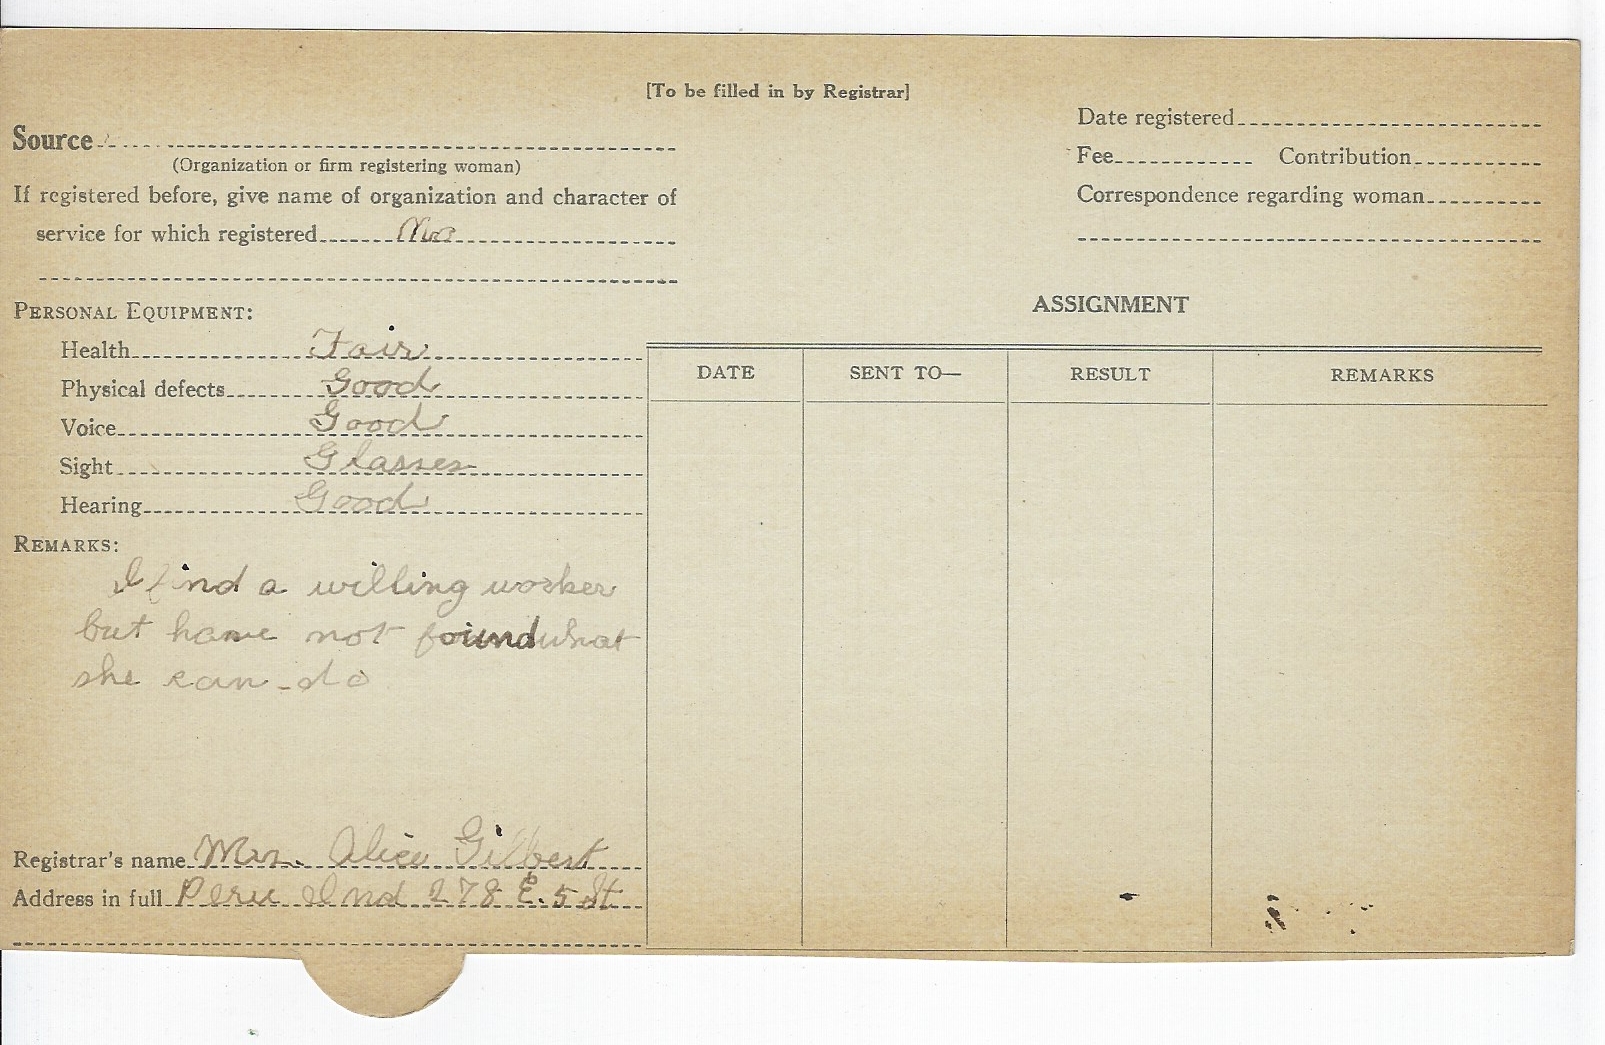 [To be filled in by Registrar]
Source
(Organization or firm registering woman)
If registered before, give name of organization and character of
service for which registered
Date registered
Fee Contribution
Correspondence regarding woman
PERSONAL EQUIPMENT:
Health Fair
Physical defects Good
Voice Good
Sight Glasses
Hearing Good
REMARKS:
I find a willing worker
but have not found what
she can do
Registrar's name Mrs. Alice Gilbert
Address in full Peru Ind 278 E. 5 St
ASSIGNMENT
DATE SENT TO— RESULT REMARKS